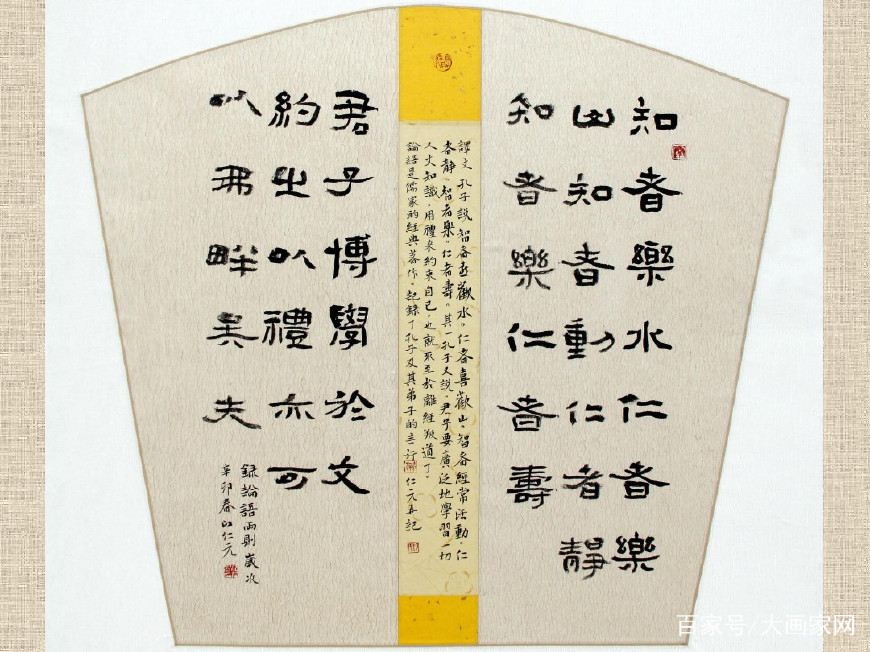 知者樂水仁者樂
山知者動仁者靜
知者樂仁者壽
譯文 孔子說智者喜歡水。仁者喜歡山。智者經常活動。仁
者靜。智者樂。仁者壽。其一孔子又說。君子要廣泛地學習一切
人文知識。用禮來約束自己，也就不至於離經叛道了。
論語是儒家的經典著作。記錄了孔子及其弟子的言行 仁元并記
君子博學於文
約之以禮亦可
以弗畔矣夫
錄論語兩則歲次
辛卯春 仁元
百家号/大画家网